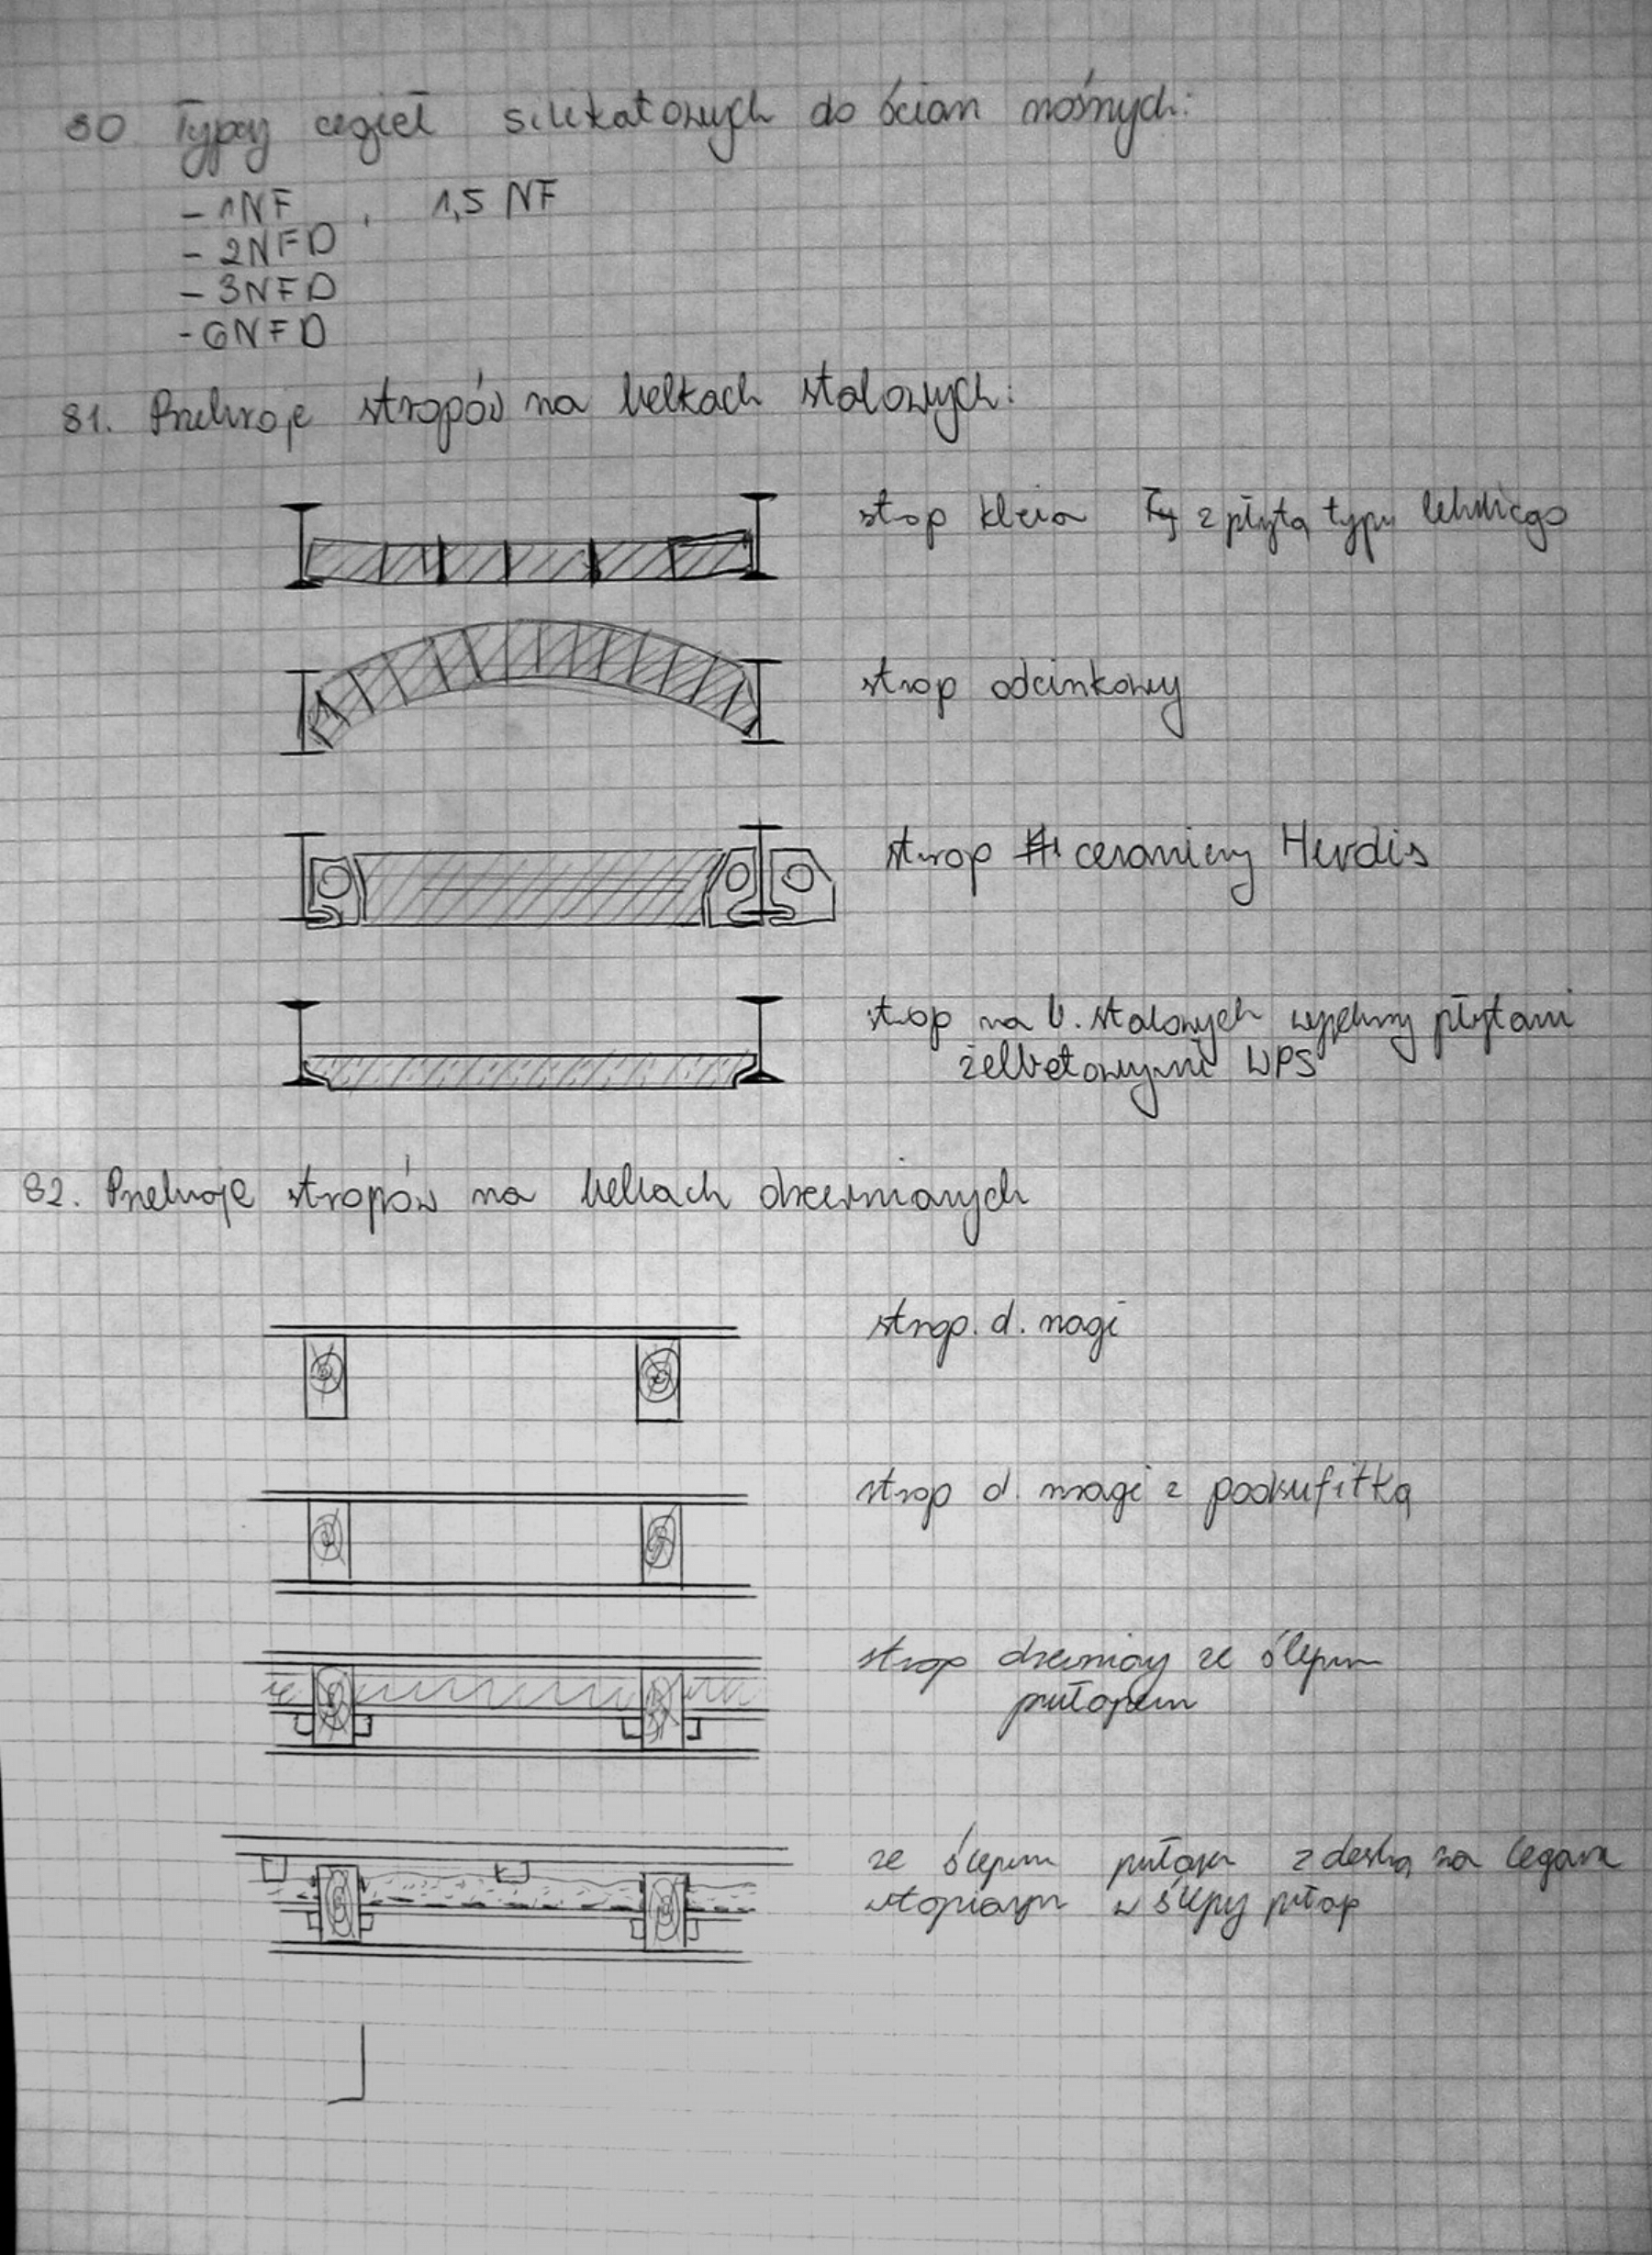 80. Typy cegieł silikatowych do ścian nośnych:
- 1NF , 1,5 NF
- 2NFD
- 3NFD
- 6NFD
81. Przekroje stropów na belkach stalowych:
stop kleina z płytą typu lekkiego
strop odcinkowy
strop ceramiczny Herdis
stop na b. stalowych wypełniony płytami
żelbetowymi WPS
82. Przekroje stropów na belkach drewnianych
strop. d. nagi
strop d. nagi z podsufitką
strop drewniany ze ślepym
pułapem
ze ślepym pułapem z deską na legarze
utopianym w ślepy pułap